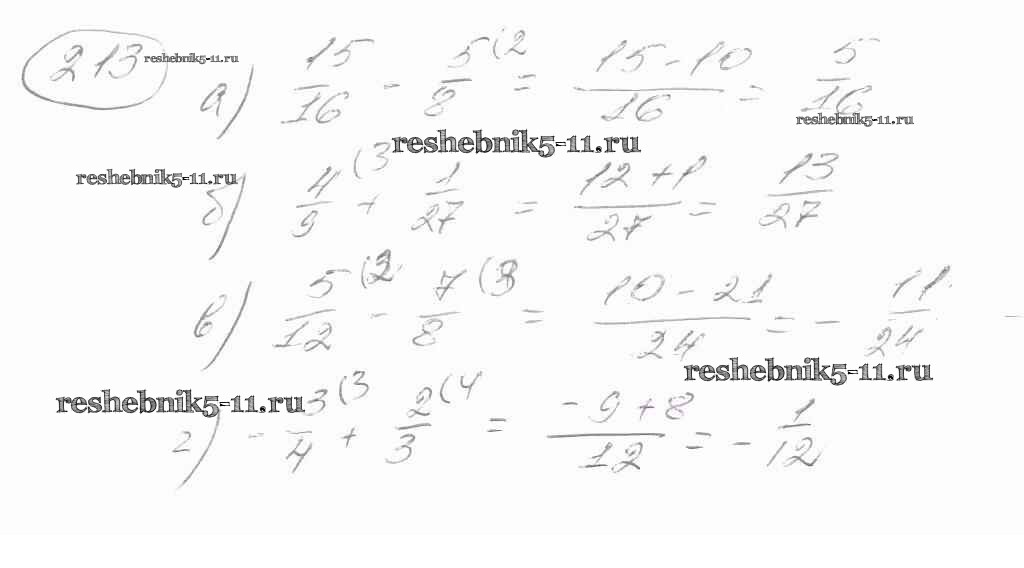 213 reshebnik5-11.ru
а) 15/16 - 5/8 (2 = 15-10/16 = 5/16
reshebnik5-11.ru
reshebnik5-11.ru
reshebnik5-11.ru
б) 4/9 (3 + 1/27 = 12+1/27 = 13/27
в) 5/12 (2 - 7/8 (3 = 10-21/24 = - 11/24 -
reshebnik5-11.ru
reshebnik5-11.ru
г) - 3/4 (3 + 2/3 (4 = -9+8/12 = - 1/12